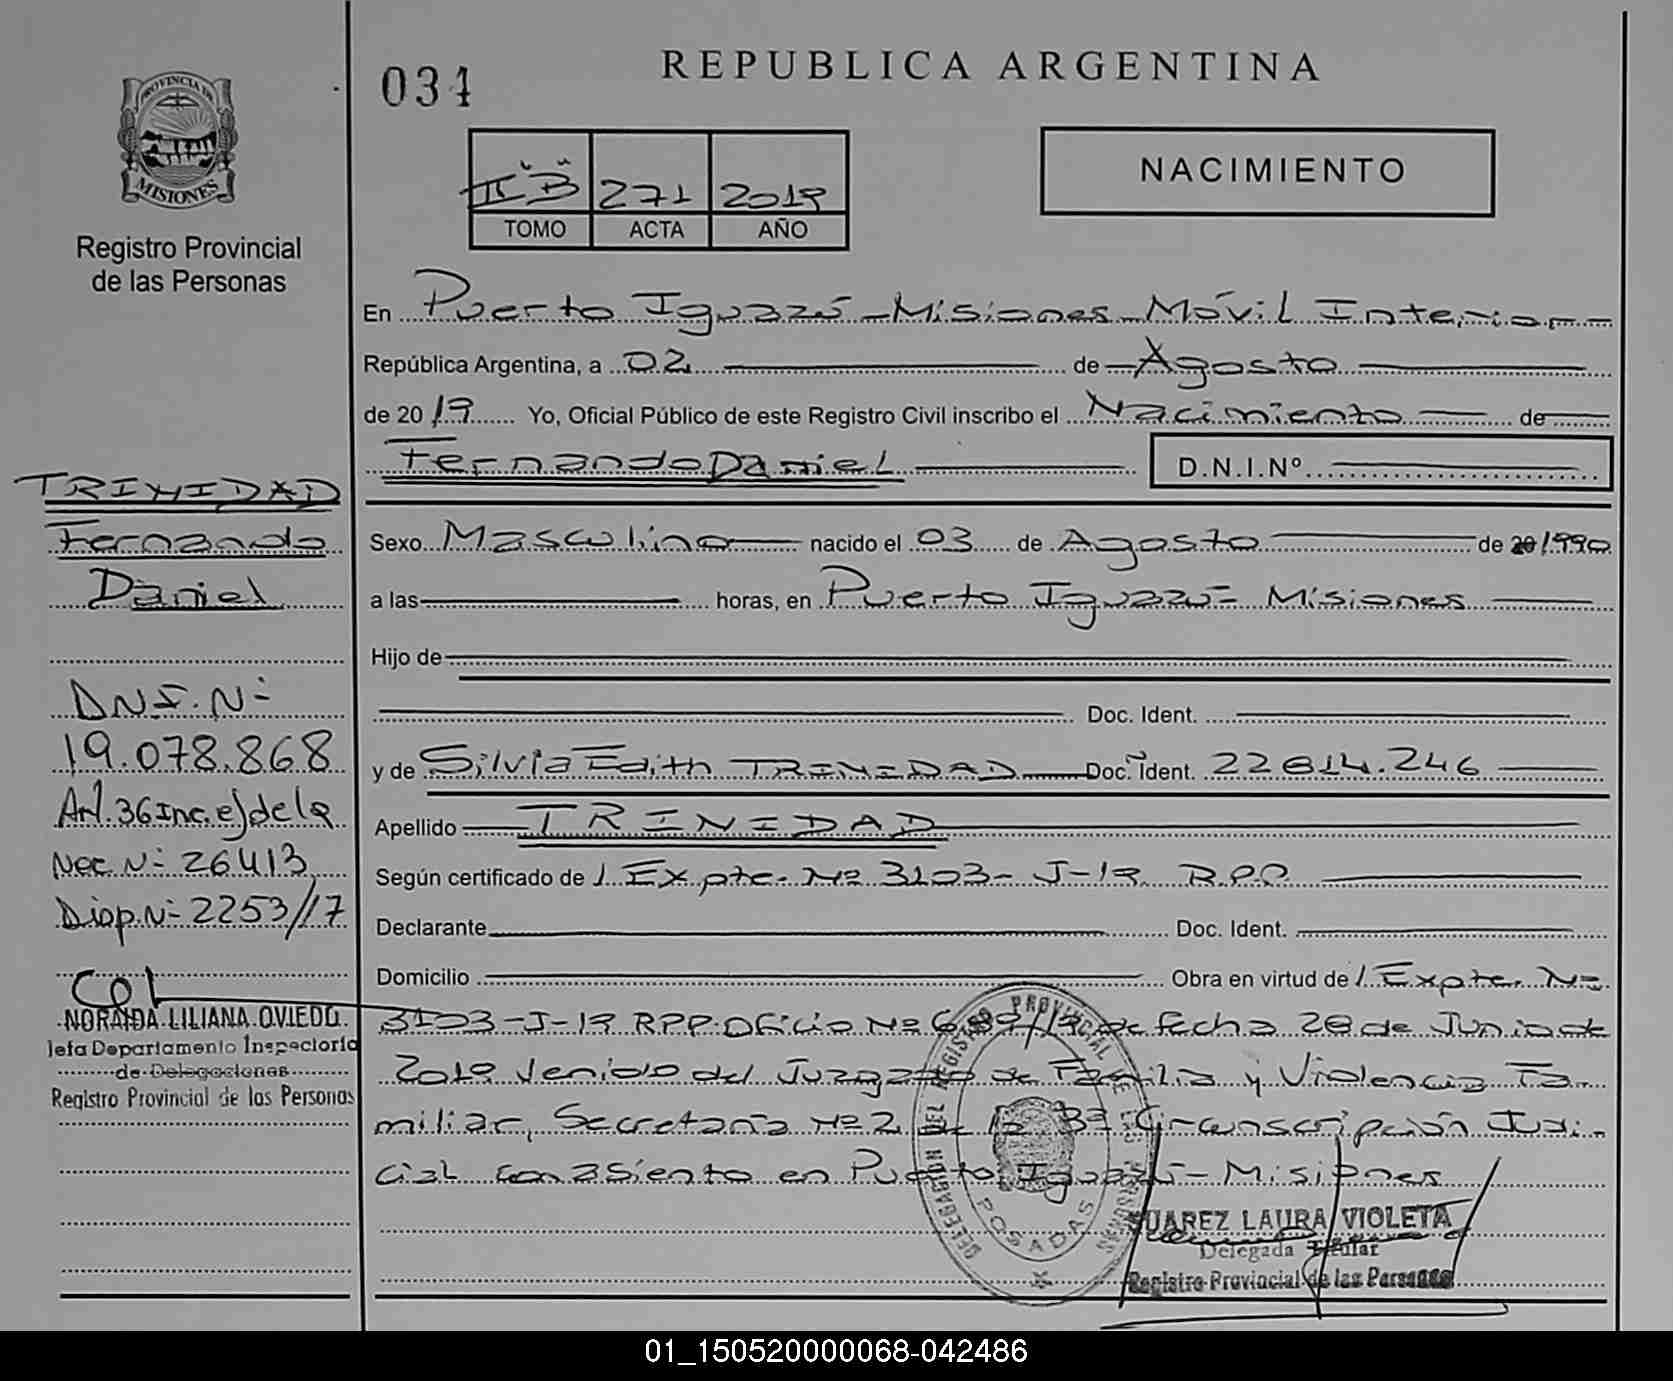 PROVINCIA DE
MISIONES
Registro Provincial
de las Personas
TRINIDAD
Fernando
Daniel
DNI. Nº
19.078.868
Art. 36 Inc. e) de la
Nec. Nº 26413
Disp. Nº 2253/17
NORAIDA LILIANA OVIEDO
Jefa Departamento Inspectoria
de Delegaciones
Registro Provincial de las Personas
034
REPUBLICA ARGENTINA
II "B" 271 2019
TOMO ACTA AÑO
NACIMIENTO
En Puerto Iguazú - Misiones Móvil Interior
República Argentina, a 02 de Agosto
de 2019 Yo, Oficial Público de este Registro Civil inscribo el Nacimiento de
Fernando Daniel D.N.I.Nº
Sexo Masculino nacido el 03 de Agosto de 1990
a las horas, en Puerto Iguazú - Misiones
Hijo de
Doc. Ident.
y de Silvia Edith TRINIDAD Doc. Ident. 22814.246
Apellido TRINIDAD
Según certificado de / Expte. Nº 3103- J-19 R.P.P.
Declarante Doc. Ident.
Domicilio Obra en virtud de / Expte. Nº
3103-J-19 RPP. Oficio Nº /19 de fecha 28 de Junio de
2019 venido del Juzgado de Familia y Violencia Fa-
miliar, Secretaría Nº 2 de la 3ª Circunscripción Judi-
cial con asiento en Puerto Iguazú - Misiones
DELEGACION DEL REGISTRO PROVINCIAL DE LAS PERSONAS
POSADAS
SUAREZ LAURA VIOLETA
Delegada Titular
Registro Provincial de las Personas
01_150520000068-042486